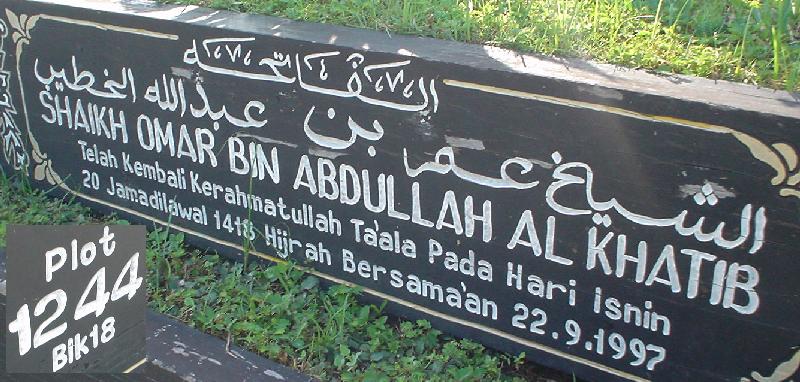 الفاتحة
الشيخ عمر بن عبدالله الخطيب
SHAIKH OMAR BIN ABDULLAH AL KHATIB
Telah Kembali Kerahmatullah Ta'ala Pada Hari Isnin
20 Jamadilawal 1418 Hijrah Bersama'an 22.9.1997
Plot
1244
Blk18